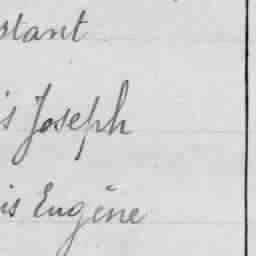 stant
is Joseph
is Eugène